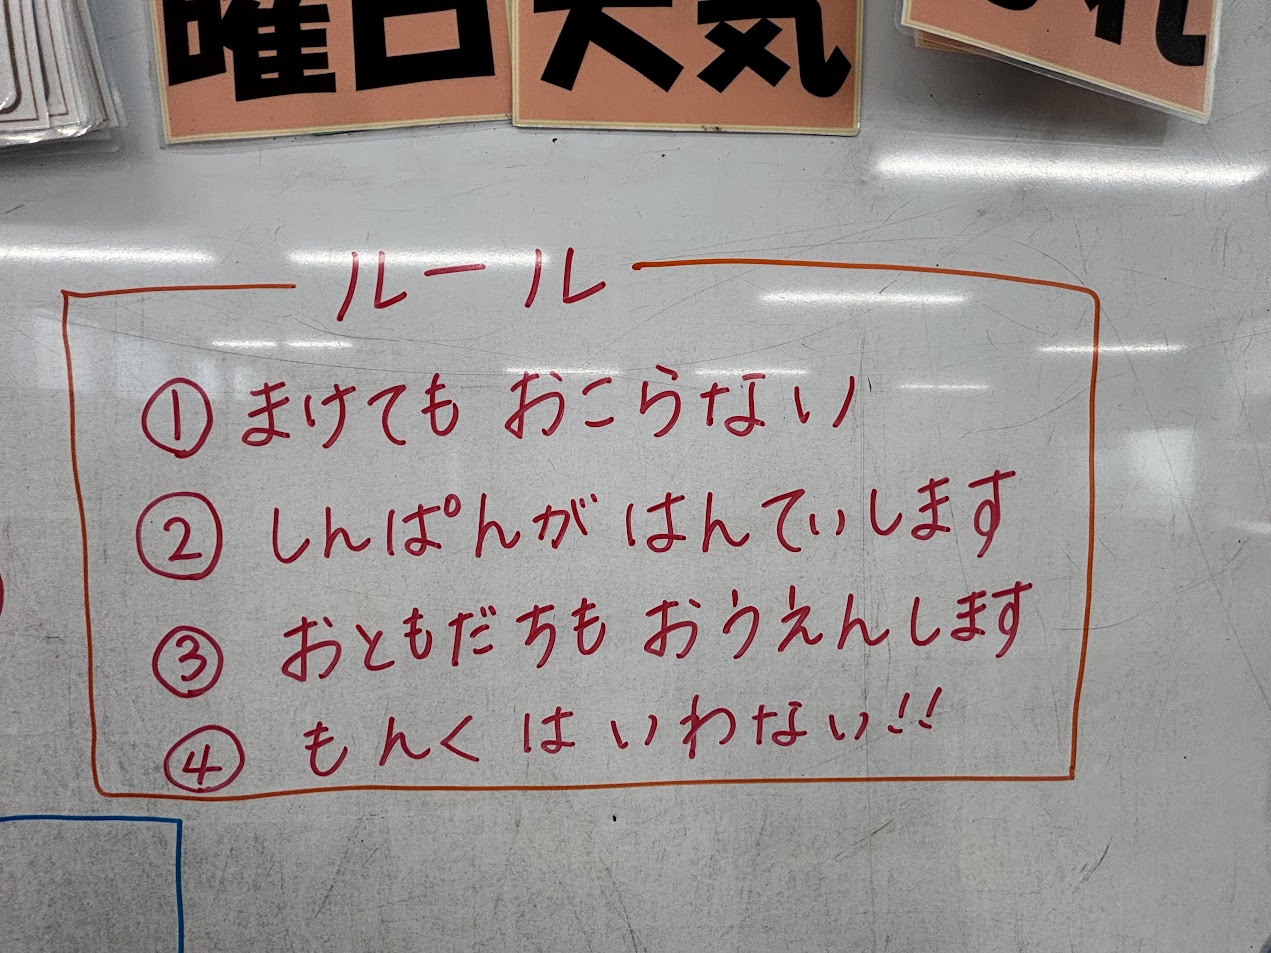 曜日
天気
ルール
① まけても おこらない
② しんぱんが はんていします
③ おともだちも おうえんします
④ もんくは いわない!!